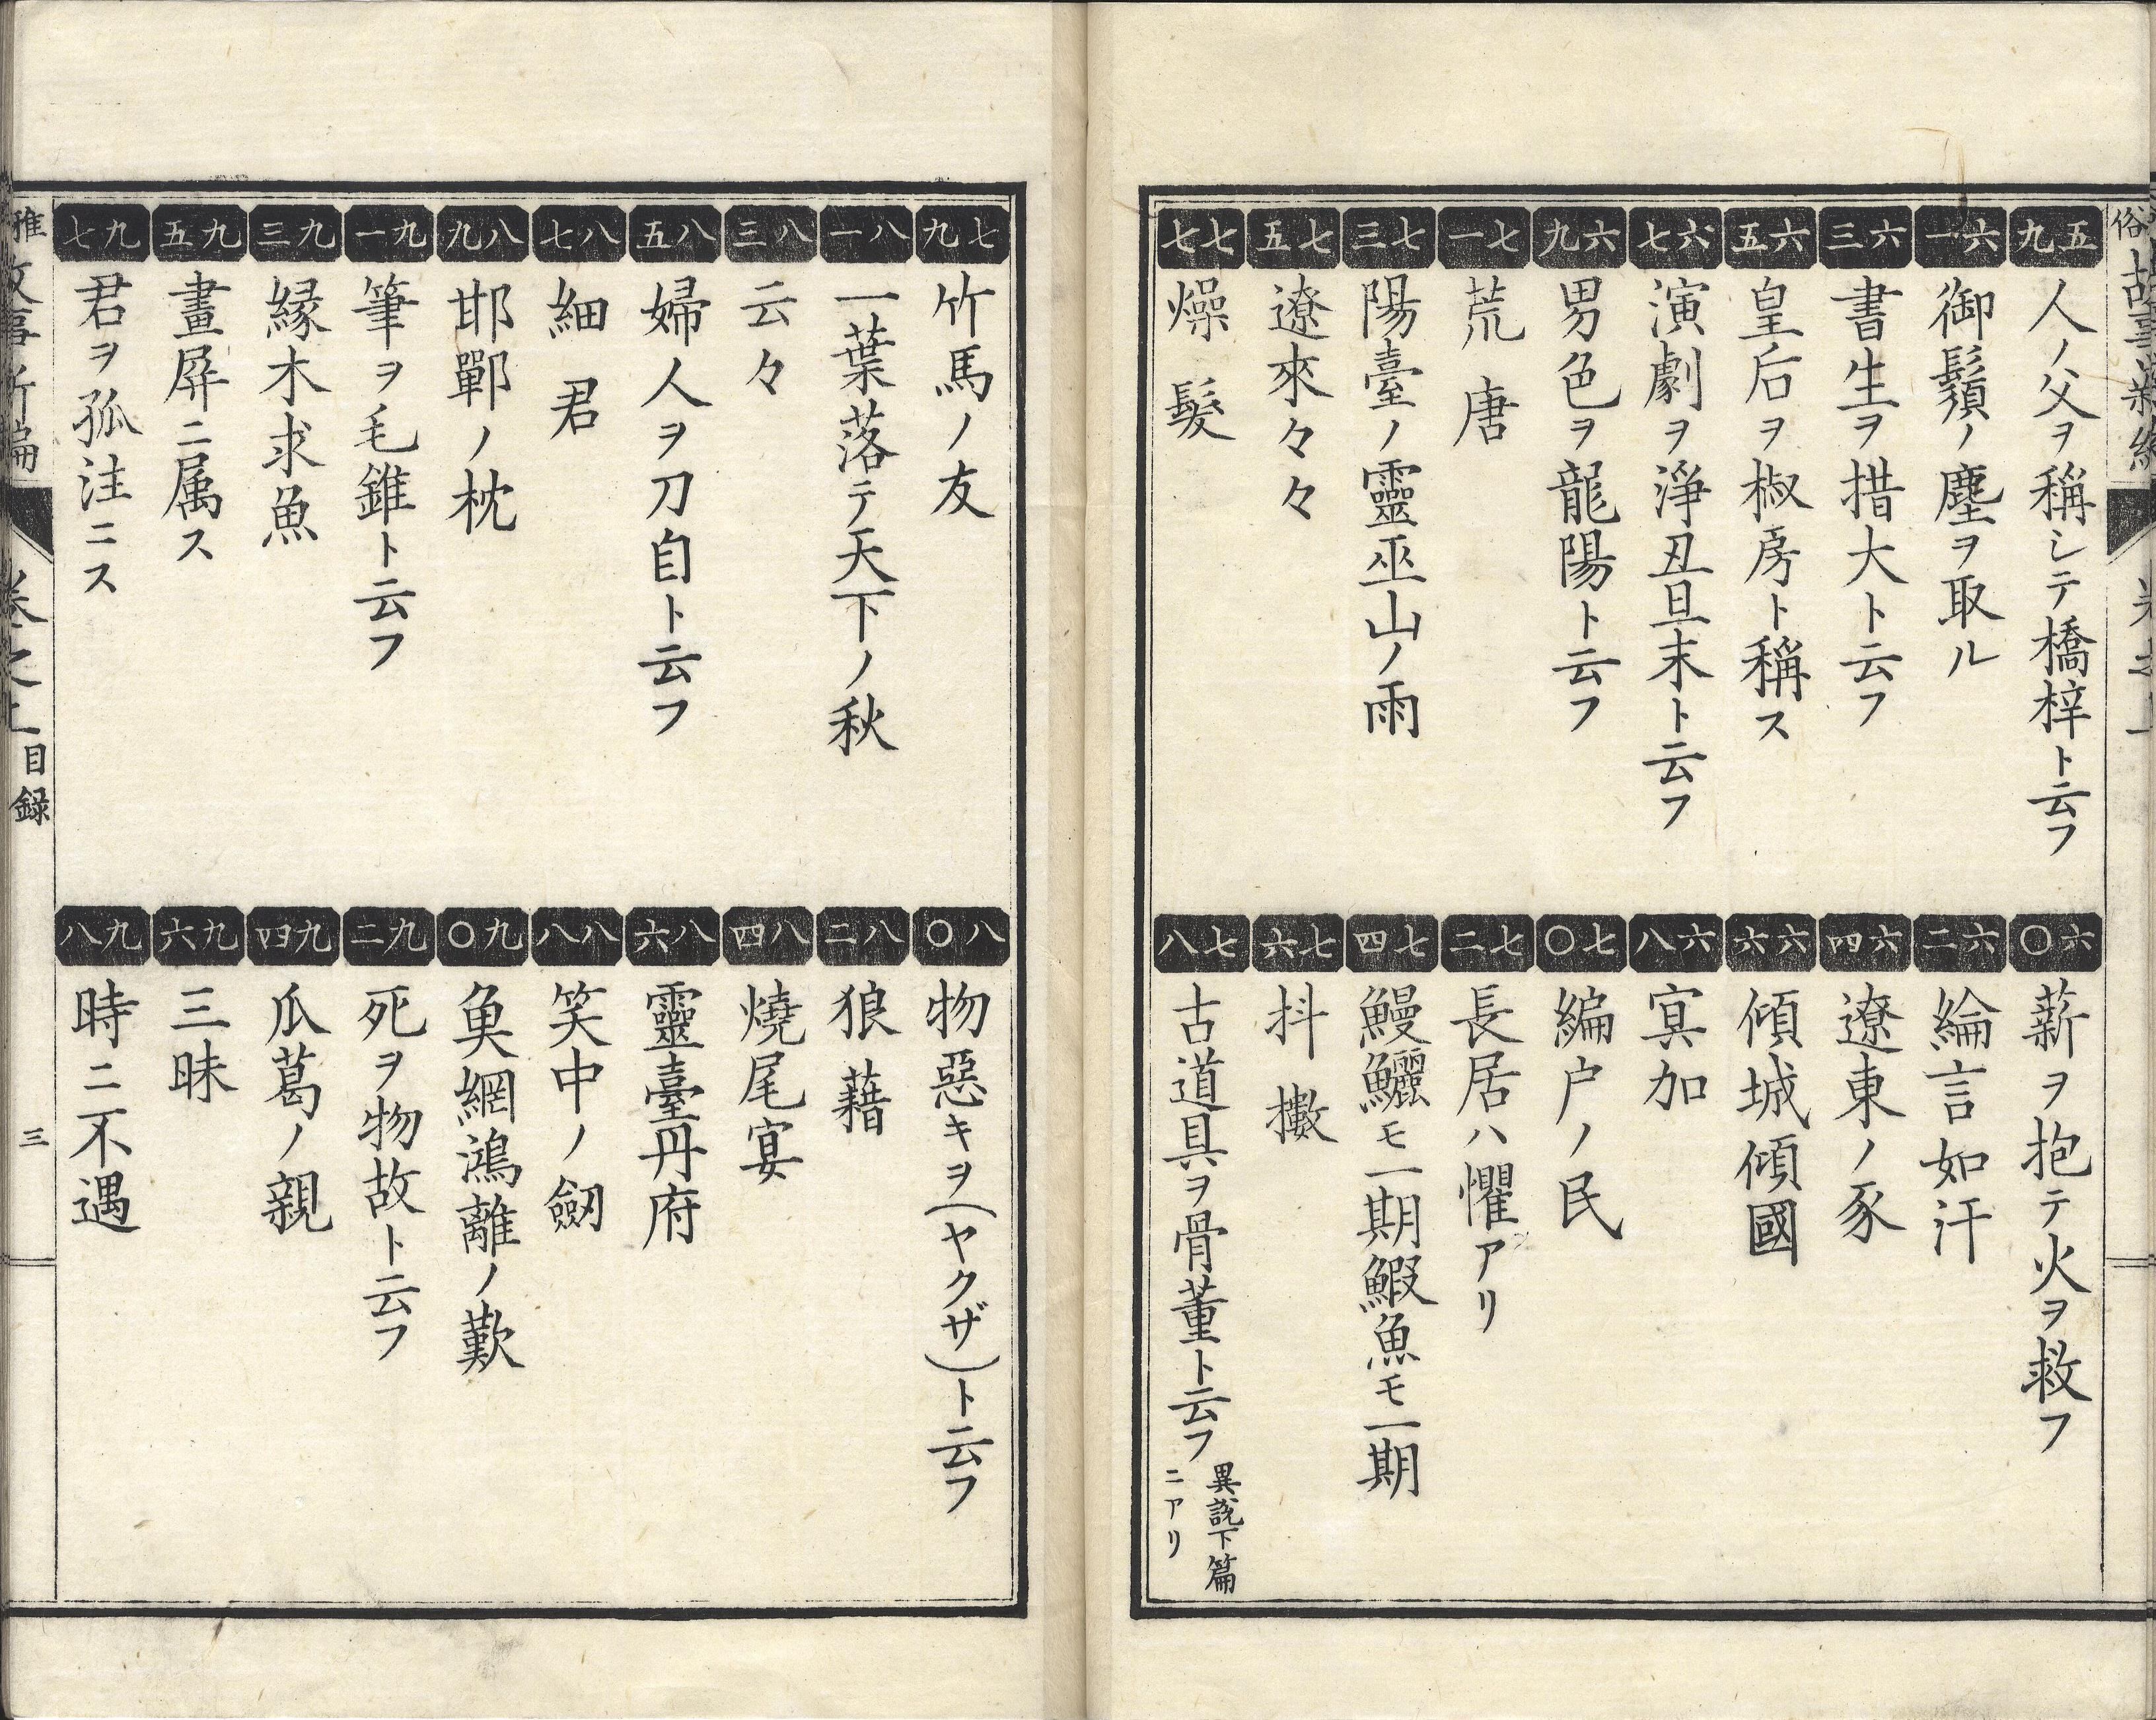 五九 人ノ父ヲ稱シテ橋梓ト云フ
六〇 薪ヲ抱テ火ヲ救フ
六一 御鬚ノ塵ヲ取ル
六二 綸言如汗
六三 書生ヲ措大ト云フ
六四 遼東ノ豕
六五 皇后ヲ椒房ト稱ス
六六 傾城傾國
六七 演劇ヲ淨丑旦末ト云フ
六八 冥加
六九 男色ヲ龍陽ト云フ
七〇 編户ノ民
七一 荒唐
七二 長居ハ懼アリ
七三 陽臺ノ靈巫山ノ雨
七四 鰻鱺モ一期鰕魚モ一期
七五 遼來々々
七六 抖擻
七七 燥髮
七八 古道具ヲ骨董ト云フ 異說下篇ニアリ
七九 竹馬ノ友
八〇 物惡キヲ(ヤクザ)ト云フ
八一 一葉落テ天下ノ秋
八二 狼藉
八三 云々
八四 燒尾宴
八五 婦人ヲ刀自ト云フ
八六 靈臺丹府
八七 細君
八八 笑中ノ劒
八九 邯鄲ノ枕
九〇 魚網鴻離ノ歎
九一 筆ヲ毛錐ト云フ
九二 死ヲ物故ト云フ
九三 縁木求魚
九四 瓜葛ノ親
九五 畫屏ニ属ス
九六 三昧
九七 君ヲ孤注ニス
九八 時ニ不遇
目録 三